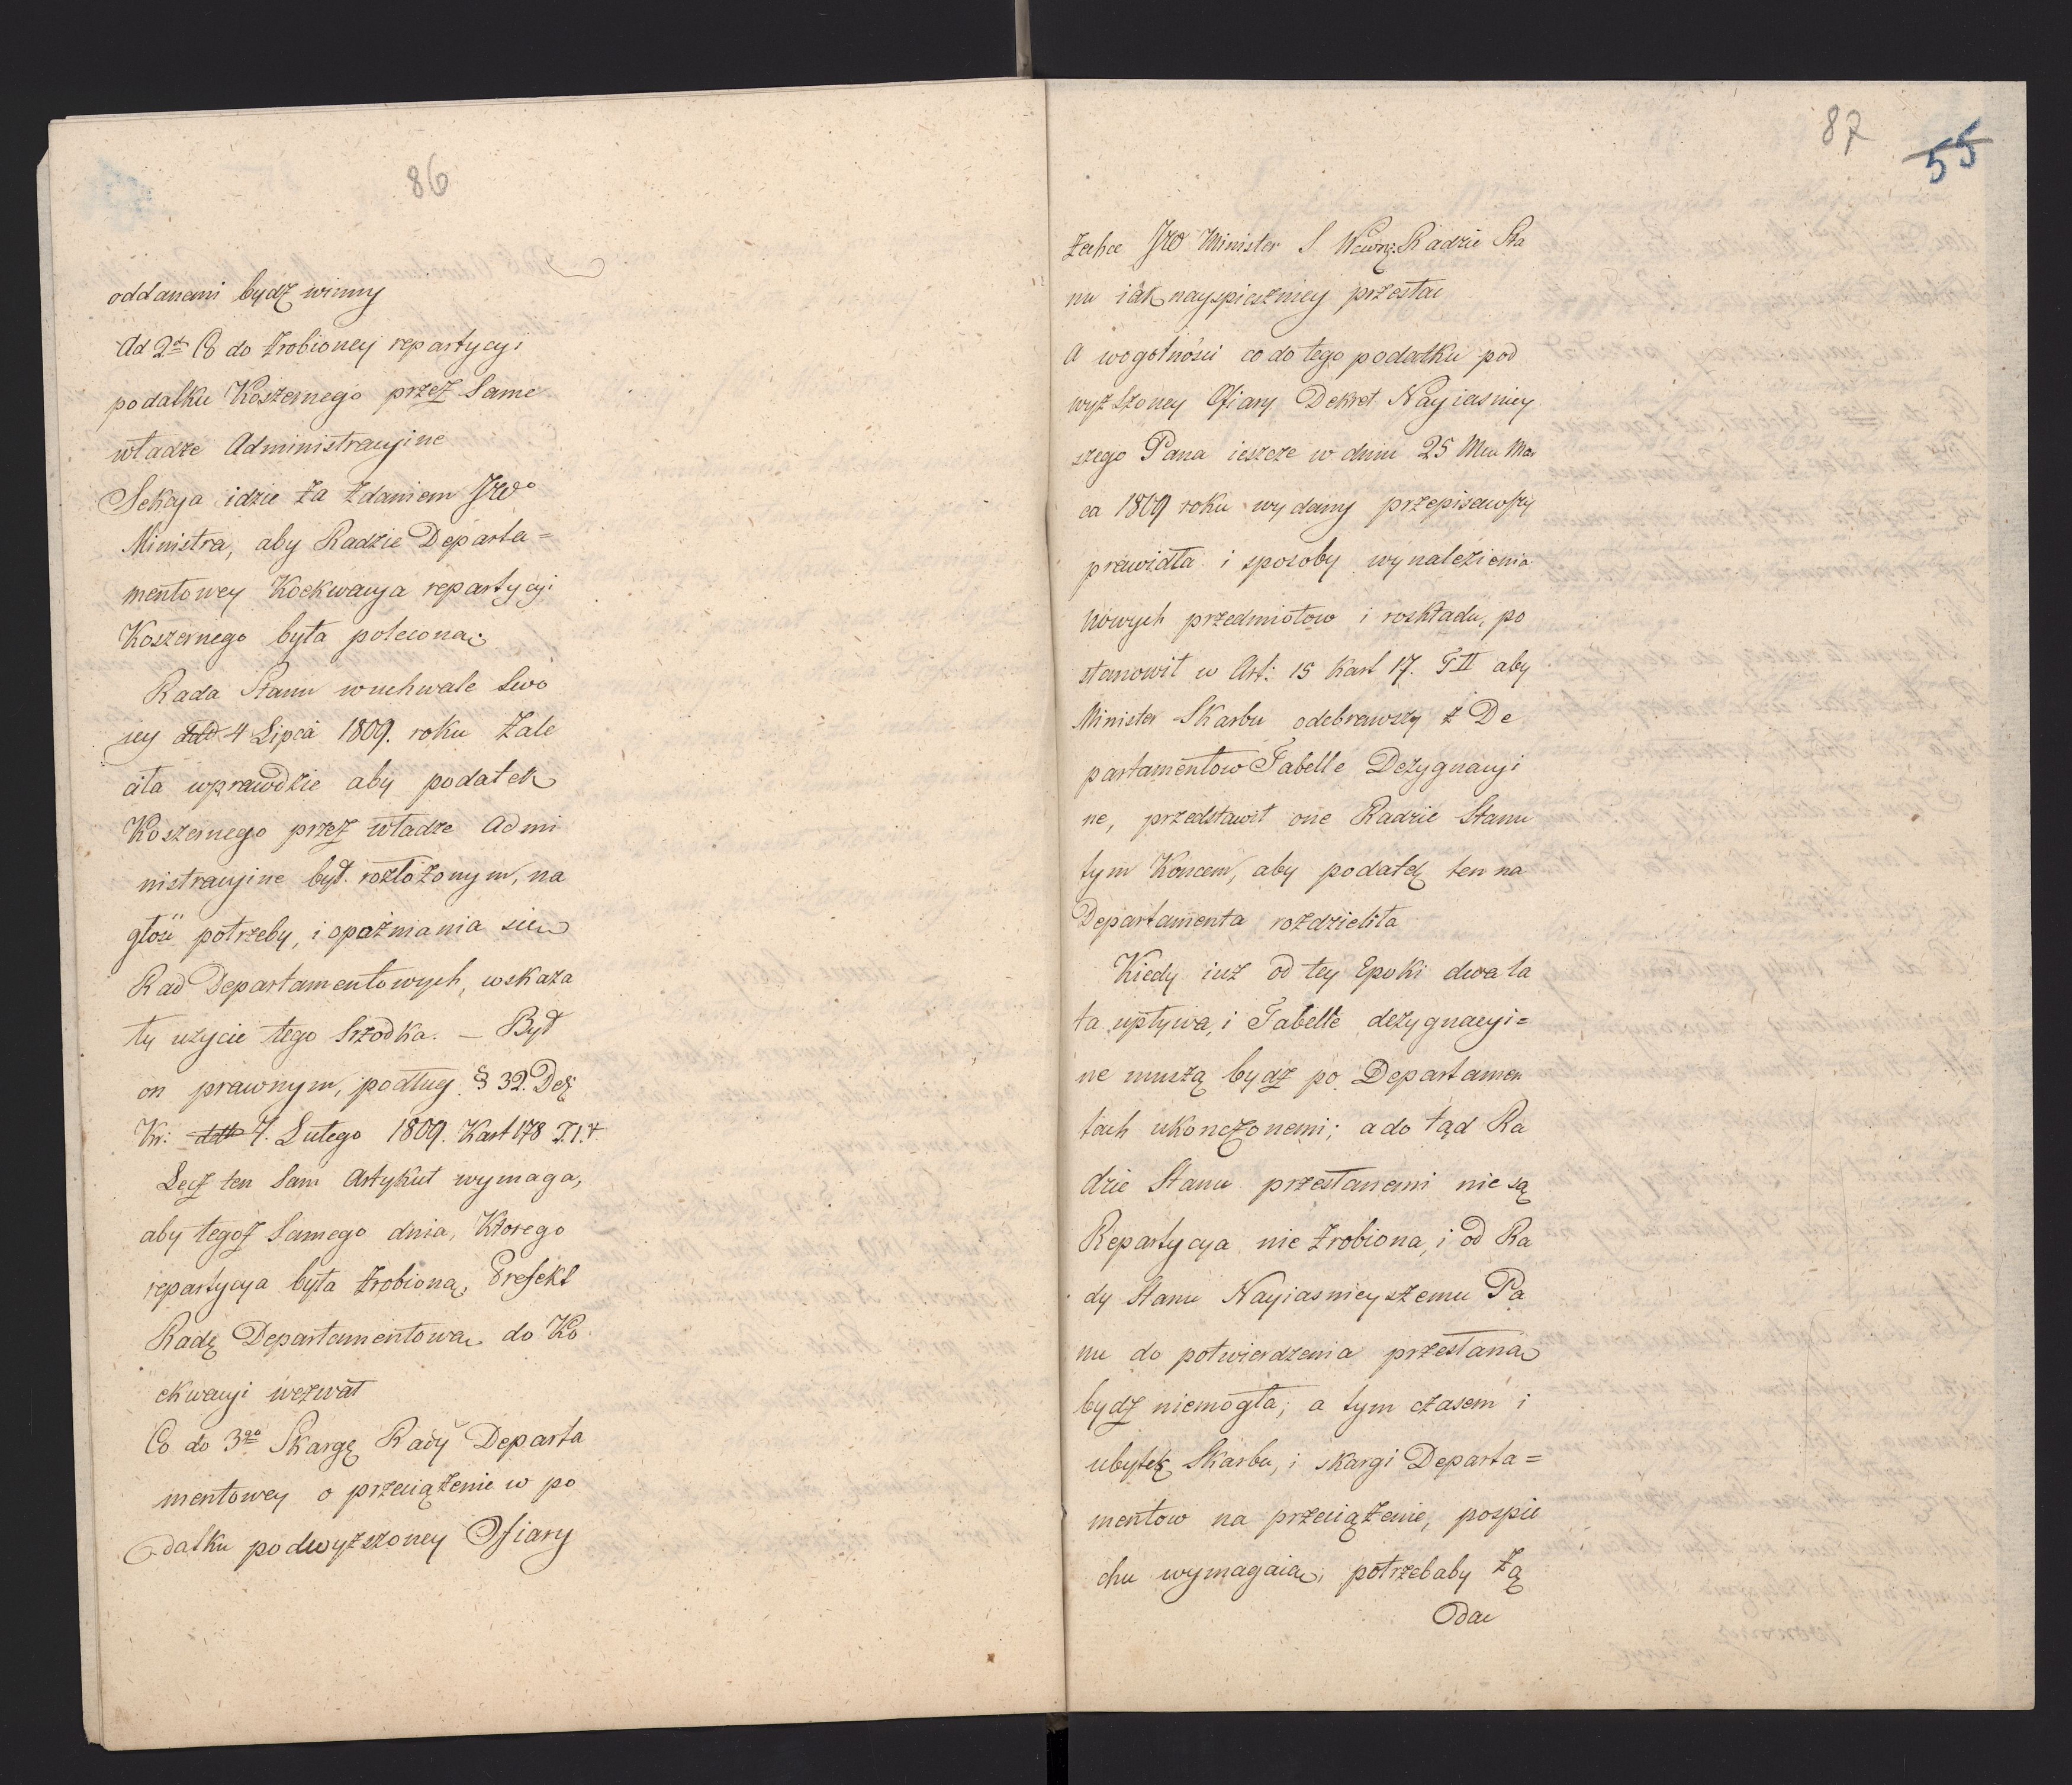 86
oddanemi bydz winny
Ad 2do Co do zrobioney repartycyi
podatku Koszernego przez Same
władze Administracyine
Sekcya idzie za zdaniem JWo
Ministra, aby Radzie Departa=
mentowey Koekwacya repartycyi
Koszernego była poleconą.
Rada Stanu w uchwale Swo
iey 4 Lipca 1809. roku zale
ciła wprawdzie aby podatek
Koszernego przez władze Admi
nistracyine był rozłożonym, na
głość potrzeby, i opaźniania się
Rad Departamentowych, wskaza
ły użycie tego srzodka. — Był
on prawnym, podług § 32. Dek
Kr: 7. Lutego 1809. Kart 178 T. 1.
Lecz ten Sam Artykuł wymaga,
aby tegoż Samego dnia, Ktorego
repartycya była zrobioną, Prefekt
Radę Departamentową do Ko
ekwacyi wezwał
Co do 3go Skargę Rady Departa
mentowey o przeciążenie w po
datku podwyższoney Ofiary
87
55
zechce JW Minister S Wewnę: Radzie Sta
nu iak nayspieszniey przesłać
A wogołności co do tego podatku pod
wyższoney Ofiary Dekret Nayiasniey
szego Pana ieszcze w dniu 25 Mca Mar
ca 1809 roku wydany przepisawszy
prawidła i sposoby wynalezienia
nowych przedmiotow i rozkładu, po
stanowił w Art: 15 Kart 17. T II aby
Minister Skarbu odebrawszy z De
partamentow Tabelle Dezygnacyi
ne, przedstawił one Radzie Stanu
tym Koncem, aby podatek ten na
Departamenta rozdzieliła
Kiedy iuż od tey Epoki dwa la
ta upływa, i Tabelle dezygnacyi=
ne muszą bydz po Departamen
tach ukonczonemi; a do tąd Ra
dzie Stanu przesłanemi nie są
Repartycya nie zrobiona, i od Ra
dy Stanu Nayiasnieyszemu Pa
nu do potwierdzenia przesłaną
bydz niemogła; a tym czasem i
ubytek Skarbu, i skargi Departa=
mentow na przeciążenie, pospie
chu wymagaią, potrzebaby żą
dać